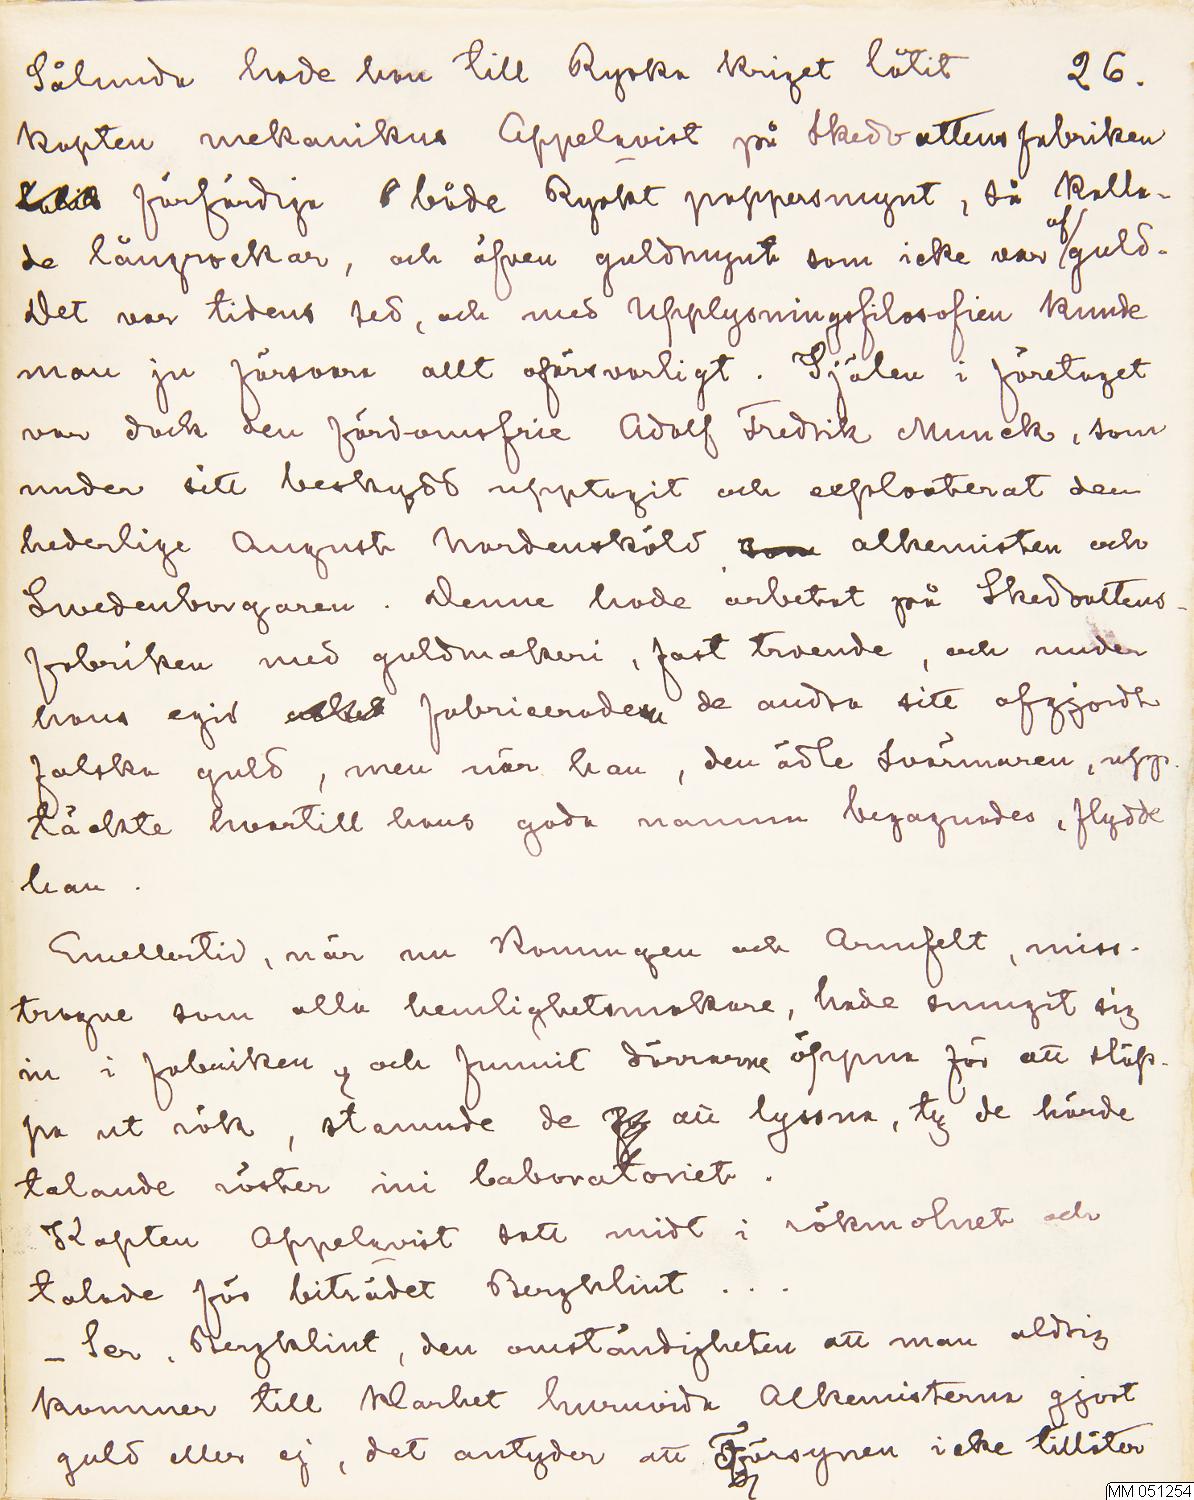 Sålunda hade han till Ryska kriget låtit 26.
kapten mekanikus Appelqvist på Skedvattensfabriken
förfärdiga både Ryskt pappersmynt, så kalla-
de långrockar, och äfven guldmynt som icke var af guld.
Det var tidens sed, och med Upplysningsfilosofien kunde
man ju försvara allt oförsvarligt. Själen i företaget
var dock den fördomsfrie Adolf Fredrik Munck, som
under sitt beskydd upptagit och exploaterat den
hederlige August Nordensköld, som alkemisten och
Swedenborgaren. Denne hade arbetat på Skedvattens-
fabriken med guldmakeri, fast troende, och under
hans egid fabricerade de andra sitt afgjordt
falska guld, men när han, den ädle svärmaren, upp-
täckte hvartill hans goda namn begagnades, flydde
han.
Emellertid, när nu Konungen och Armfelt, miss-
trogne som alla hemlighetsmakare, hade smugit sig
in i fabriken, och funnit dörrarne öppna för att släp-
pa ut rök, stannade de att lyssna, ty de hörde
talande röster ini laboratoriet.
Kapten Appelqvist satt midt i rökmolnet och
talade för biträdet Bergklint . . .
– Ser, Bergklint, den omständigheten att man aldrig
kommer till klarhet huruvida Alkemisterna gjort
guld eller ej, det antyder att Försynen icke tillåter
MM 051254